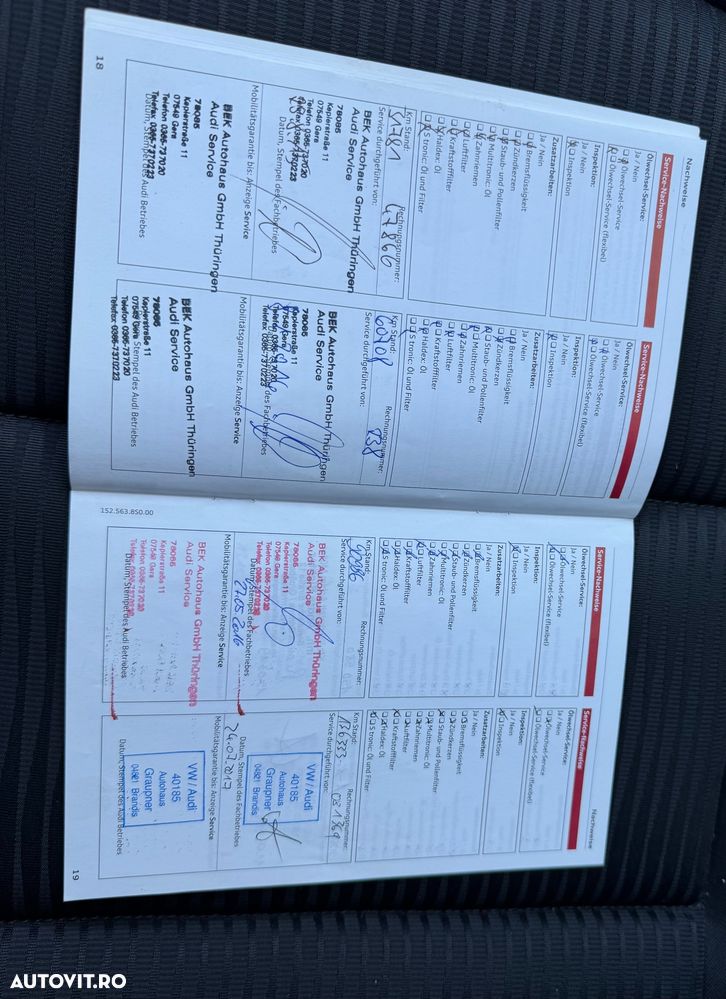 Nachweise
Service-Nachweise
Ölwechsel-Service:
Ja / Nein
Ölwechsel-Service
Ölwechsel-Service (flexibel)
Inspektion:
Ja / Nein
Inspektion
Zusatzarbeiten:
Ja / Nein
Bremsflüssigkeit
Zündkerzen
Staub- und Pollenfilter
Multitronic: Öl
Zahnriemen
Luftfilter
Kraftstofffilter
Haldex: Öl
S tronic: Öl und Filter
Km Stand:
Rechnungsnummer:
47866
Service durchgeführt von:
BEK Autohaus GmbH Thüringen
Audi Service
78085
Keplerstraße 11
07549 Gera
Telefon 0365-737020
Telefax 0365-7370223
Datum, Stempel des Fachbetriebes
Mobilitätsgarantie bis: Anzeige Service
BEK Autohaus GmbH Thüringen
Audi Service
78085
Keplerstraße 11
07549 Gera
Telefon 0365-737020
Telefax 0365-7370223
Datum, Stempel des Audi Betriebes
18
Service-Nachweise
Ölwechsel-Service:
Ja / Nein
Ölwechsel-Service
Ölwechsel-Service (flexibel)
Inspektion:
Ja / Nein
Inspektion
Zusatzarbeiten:
Ja / Nein
Bremsflüssigkeit
Zündkerzen
Staub- und Pollenfilter
Multitronic: Öl
Zahnriemen
Luftfilter
Kraftstofffilter
Haldex: Öl
S tronic: Öl und Filter
Km Stand:
Rechnungsnummer:
60708
838
Service durchgeführt von:
BEK Autohaus GmbH Thüringen
Audi Service
78085
Keplerstraße 11
07549 Gera
Telefon 0365-737020
Telefax 0365-7370223
Mobilitätsgarantie bis: Anzeige Service
BEK Autohaus GmbH Thüringen
Audi Service
78085
Keplerstraße 11
07549 Gera
Telefon 0365-737020
Telefax 0365-7370223
Stempel des Audi Betriebes
152.563.850.00
Service-Nachweise
Ölwechsel-Service:
Ja / Nein
Ölwechsel-Service
Ölwechsel-Service (flexibel)
Inspektion:
Ja / Nein
Inspektion
Zusatzarbeiten:
Ja / Nein
Bremsflüssigkeit
Zündkerzen
Staub- und Pollenfilter
Multitronic: Öl
Zahnriemen
Luftfilter
Kraftstofffilter
Haldex: Öl
S tronic: Öl und Filter
Km Stand:
Rechnungsnummer:
Service durchgeführt von:
BEK Autohaus GmbH Thüringen
Audi Service
78085
Keplerstraße 11
07549 Gera
Telefon 0365-737020
Telefax 0365-7370223
Datum, Stempel des Fachbetriebes
27.05.2016
Mobilitätsgarantie bis: Anzeige Service
BEK Autohaus GmbH Thüringen
Audi Service
78085
Keplerstraße 11
07549 Gera
Telefon 0365-737020
Telefax 0365-7370223
Datum, Stempel des Audi Betriebes
Nachweise
Service-Nachweise
Ölwechsel-Service:
Ja / Nein
Ölwechsel-Service
Ölwechsel-Service (flexibel)
Inspektion:
Ja / Nein
Inspektion
Zusatzarbeiten:
Ja / Nein
Bremsflüssigkeit
Zündkerzen
Staub- und Pollenfilter
Multitronic: Öl
Zahnriemen
Luftfilter
Kraftstofffilter
Haldex: Öl
S tronic: Öl und Filter
Km Stand:
Rechnungsnummer:
136333
Service durchgeführt von:
VW / Audi
40185
Autohaus
Graupner
04821 Brandis
Datum, Stempel des Fachbetriebes
24.07.2017
Mobilitätsgarantie bis: Anzeige Service
VW / Audi
40185
Autohaus
Graupner
04821 Brandis
Datum, Stempel des Audi Betriebes
19
AUTOVIT.RO